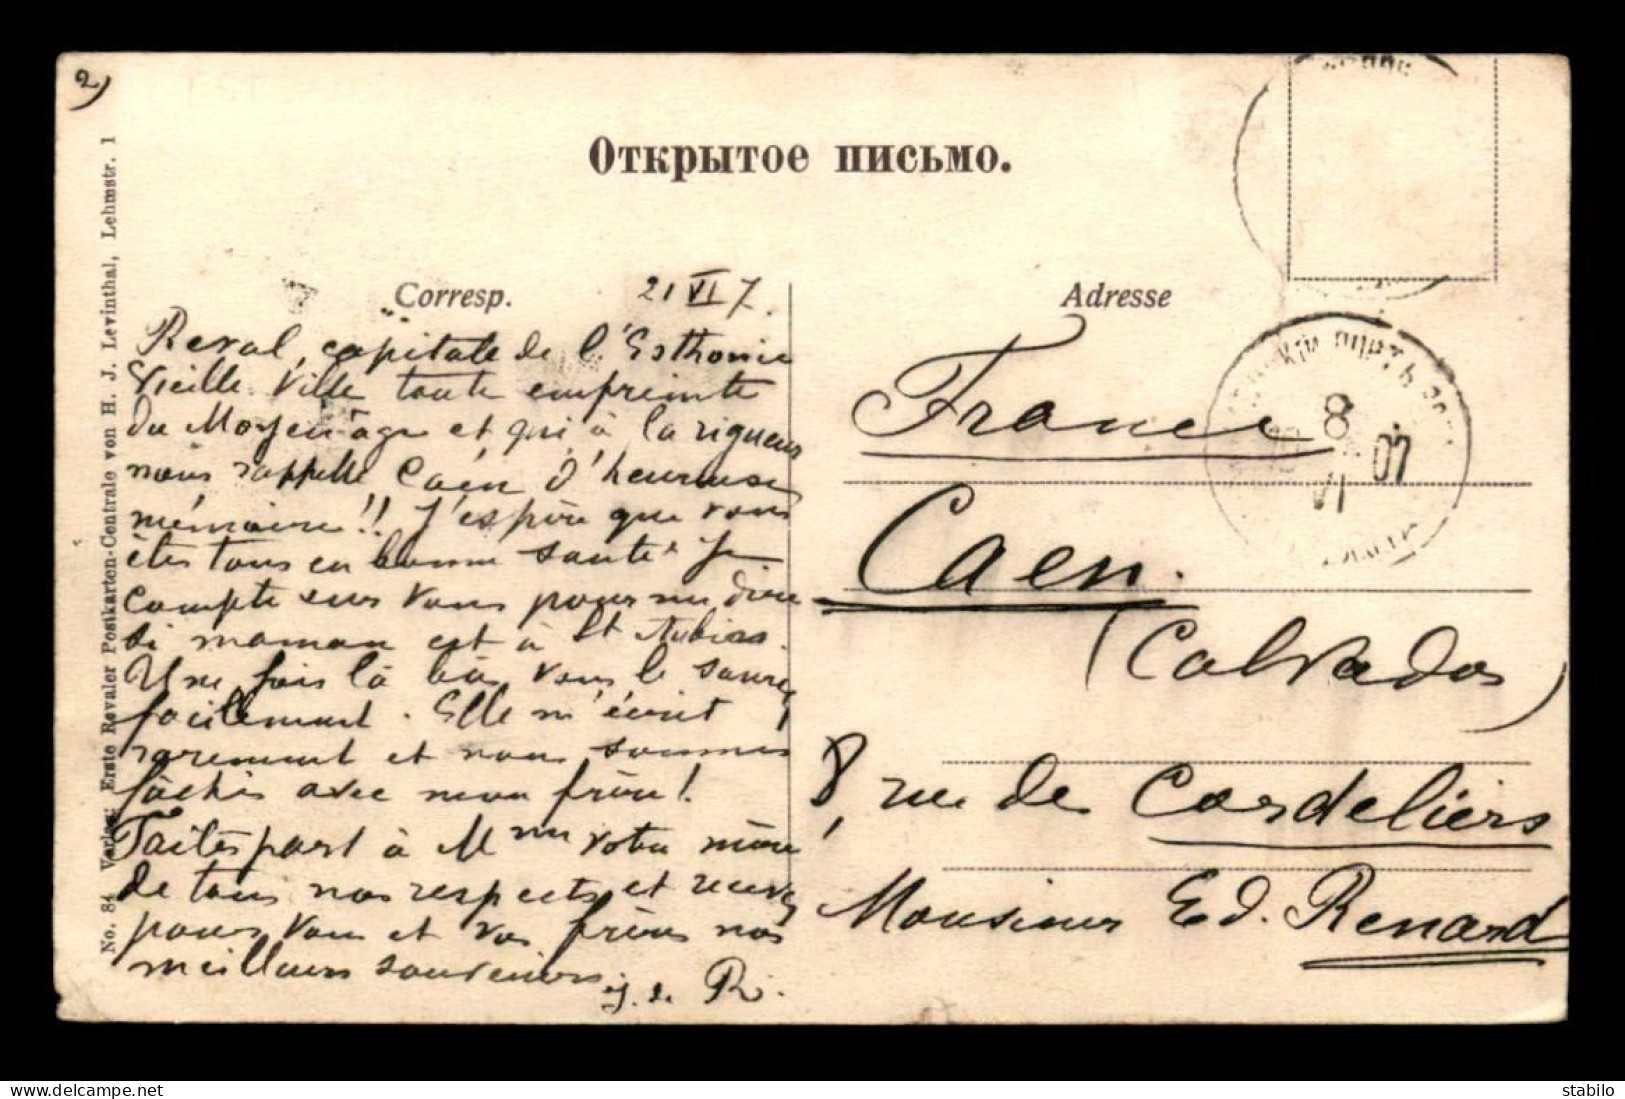 2)
Открытое письмо.
Corresp.
21 VI 7.
Adresse
Reval, capitale de l'Esthonie
Vieille Ville toute empreinte
du Moyen âge et qui à la rigueur
nous rappelle Caen d'heureuse
mémoire!! J'espère que vous
êtes tous en bonne santé. Je
compte sur vous pour me dire
si maman est à St Aubin.
Une fois là bas vous le saurez
facilement. Elle m'écrit
rarement et nous sommes
fâchés avec mon frère!
Faites part à Mme votre mère
de tous nos respects et recevez
pour vous et vos frères nos
meilleurs souvenirs
J. de R.
France
Caen.
(Calvados)
8, rue de Cordeliers
Monsieur Ed. Renard
8
VI 07
No. 84 Verlag: Erste Revaler Postkarten-Centrale von H. J. Levinthal, Lehmstr. 1
stabilo